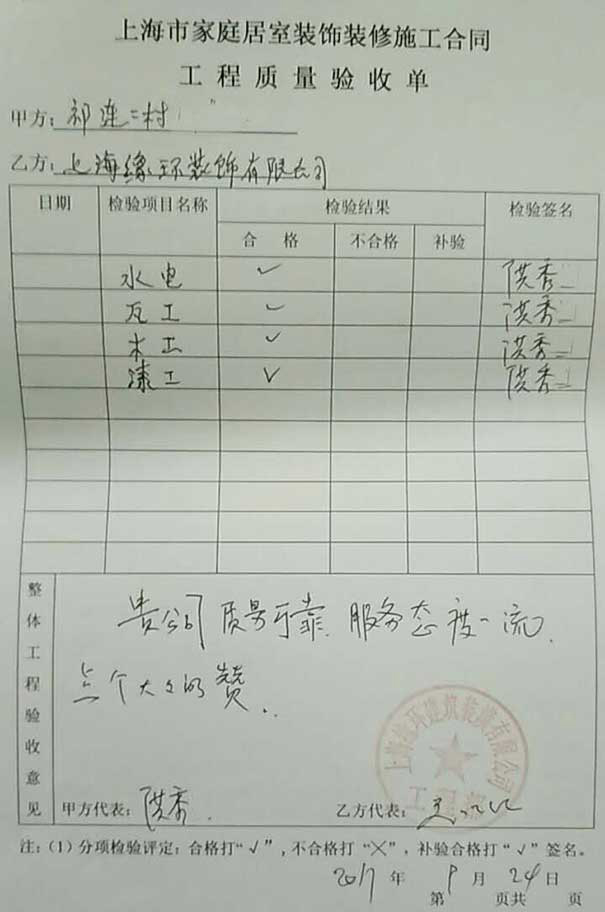 上海市家庭居室装饰装修施工合同
工程质量验收单
甲方：祁连二村
乙方：上海缘环装饰有限公司
日期 检验项目名称 检验结果 检验签名
合格 不合格 补验
水电 ✓ 洪秀
瓦工 ✓ 洪秀
木工 ✓ 洪秀
漆工 ✓ 洪秀
整体工程验收意见
贵公司质量可靠，服务态度一流，
点个大大的赞．
上海缘环建筑装潢有限公司
甲方代表：洪秀 乙方代表：
注：(1)分项检验评定：合格打“√”，不合格打“×”，补验合格打“√”签名。
2017年9月24日
第 页共 页